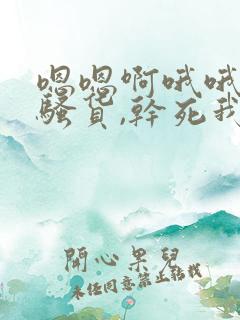 嗯嗯啊哦哦
骚货,幹死我
開心果兒
未经同意禁止转载